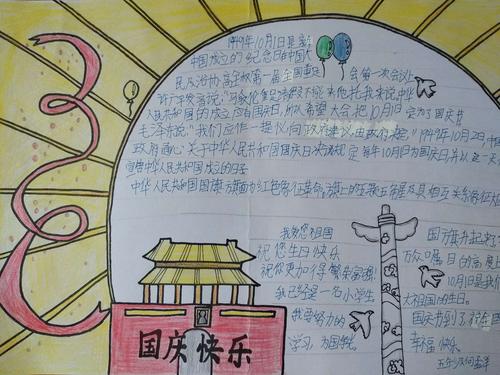 1949年10月1日是新
中国成立的纪念日中国人
民政治协商会议第一届全国委 会第一次会议
许广平发言说："马叙伦委员请假不能来他托我来说中华
人民共和国的成立应有国庆日,所以希望大会把10月1日定为了国庆节
毛泽东说:"我们应作一提议,向政府建议,由政府决定,"1949年10月2日,中央
政府通 关于中华人民共和国国庆日 规定每年10月1日为国庆日并以这一天
中华人民共和国成立的日子
中华人民共和国国旗旗面为红色象征革命旗上的五颗五角星及其相互关系象征
我爱您祖国
祝您生日快乐
祝您更加得繁荣富强
我已经是一名小学生
我要努力的
学习,为国
国旗升起
万众瞩目的高度上
10月1日是我们
大祖国的生日。
国庆节到了祝
幸福快乐
国庆快乐